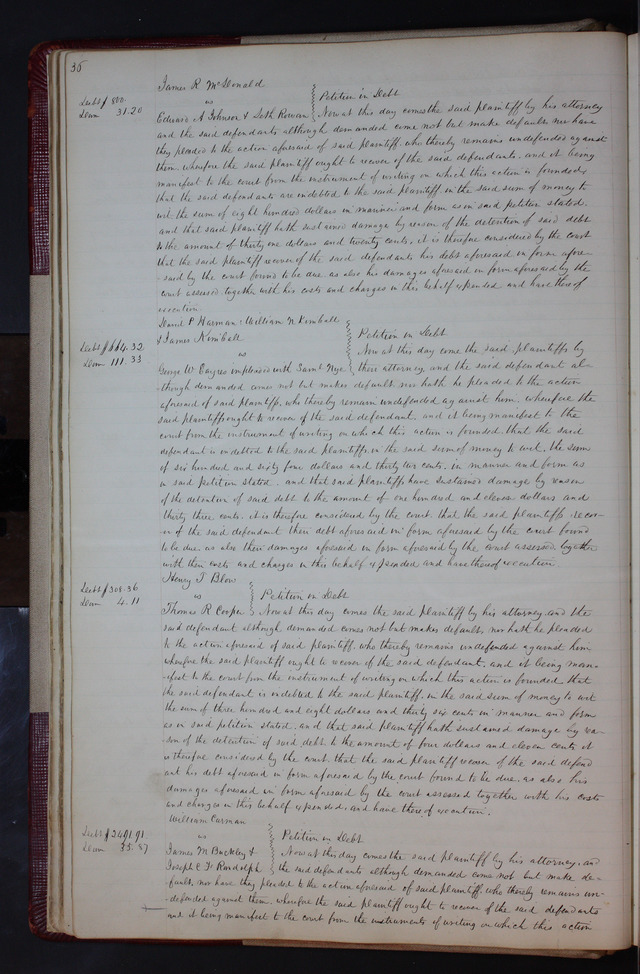 36
James R McDonald
Debt $ 800.
vs
Petition in Debt
Dam 31.20
Edward A Johnson & Seth Rowan
Now at this day comes the said plaintiff by his attorney
and the said defendants although demanded come not but make default nor have
they pleaded to the action aforesaid of said plaintiff, who thereby remains undefended against
them, wherefore the said plaintiff ought to recover of the said defendants, and it being
manifest to the court from the instrument of writing on which this action is founded,
that the said defendants are indebted to the said plaintiff in the said sum of money to
wit the sum of eight hundred dollars in manner and form as in said petition stated.
and that said plaintiff hath sustained damage by reason of the detention of said debt
to the amount of thirty one dollars and twenty cents, it is therefore considered by the court
that the said plaintiff recover of the said defendants his debt aforesaid in form afore-
-said by the court found to be due as also his damages aforesaid in form aforesaid by the
court assessed together with his costs and charges in this behalf expended and have thereof
execution.
P Harman, William N Kimball
& James Kimball
Petition in Debt
Debt $ 664.32
vs
Now at this day come the said plaintiffs by
Dam 111 33
George W Eayres impleaded with Saml Nye
there attorney, and the said defendant al-
though demanded comes not but makes default, nor hath he pleaded to the action
aforesaid of said plaintiffs, who thereby remain undefended against him, wherefore the
said plaintiff ought to recover of the said defendant, and it being manifest to the
court from the instrument of writing on which this action is founded, that the said
defendant is indebted to the said plaintiffs in the said sum of money to wit, the sum
of six hundred and sixty four dollars and thirty two cents, in manner and form as
in said petition stated, and that said plaintiffs have sustained damage by reason
of the detention of said debt to the amount of one hundred and eleven dollars and
thirty three cents. it is therefore considered by the court that the said plaintiffs recov-
-er of the said defendant their debt aforesaid in form aforesaid by the court found
to be due, as also their damages aforesaid in form aforesaid by the court assessed together
with their costs and charges in this behalf expended and have thereof execution.
Henry T Blow
Debt $ 308.36
vs
Petition in Debt
Dam 4.11
Thomas R Cooper
Now at this day comes the said plaintiff by his attorney and the
said defendant although demanded comes not but makes default, nor hath he pleaded
to the action aforesaid of said plaintiff, who thereby remains undefended against him
wherefore the said plaintiff ought to recover of the said defendant, and it being mani-
-fest to the court from the instrument of writing on which this action is founded that
the said defendant is indebted to the said plaintiff in the said sum of money to wit
the sum of three hundred and eight dollars and thirty six cents in manner and form
as in said petition stated, and that said plaintiff hath sustained damage by rea-
son of the detention of said debt to the amount of four dollars and eleven cents it
is therefore considered by the court that the said plaintiff recover of the said defend
ant his debt aforesaid in form aforesaid by the court found to be due, as also his
damages aforesaid in form aforesaid by the court assessed together with his costs
and charges in this behalf expended, and have thereof execution.
William Carman
Debt $ 2491.91
vs
Petition in Debt
Dam 33.87
James M Buckley &
Now at this day comes the said plaintiff by his attorney, and
Joseph C F Randolph
the said defendants although demanded come not but make de-
fault, nor have they pleaded to the action aforesaid of said plaintiff, who thereby remains un-
-defended against them, wherefore the said plaintiff ought to recover of the said defendants
and it being manifest to the court from the instruments of writing on which this action